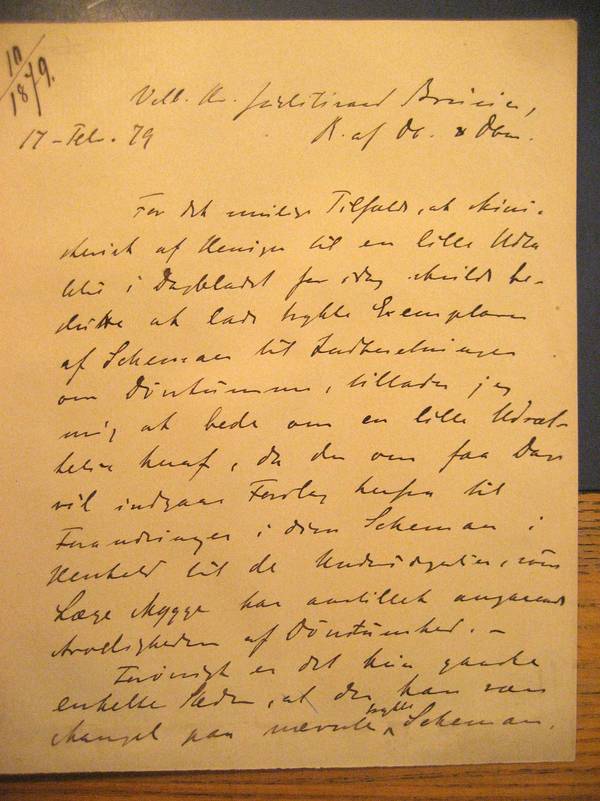 10/1879.
Velb. Hr. Justitiraad
17 - Feb. 79
R. af Db. & Dbm.
For det mulige Tilfælde, at Mini-
steriet af Hensyn til en lille
i Dagbladet for idag skulde be-
slutte at lade trykke Exemplarer
af Schemaer til Indberetninger
om Døvstumme, tillader jeg
mig at bede om en lille Udsæt-
telse heraf, da der om faa Dage
vil indgaae Forslag herfra til
Forandringer i disse Schemaer i
Henhold til de Undersøgelser, som
Læge Mygge har anstillet angaaende
Arveligheden af Døvstumhed. -
Forøvrigt er det kun ganske
enkelte Steder, at der kan være
Mangel paa nævnte trykte Schemaer.